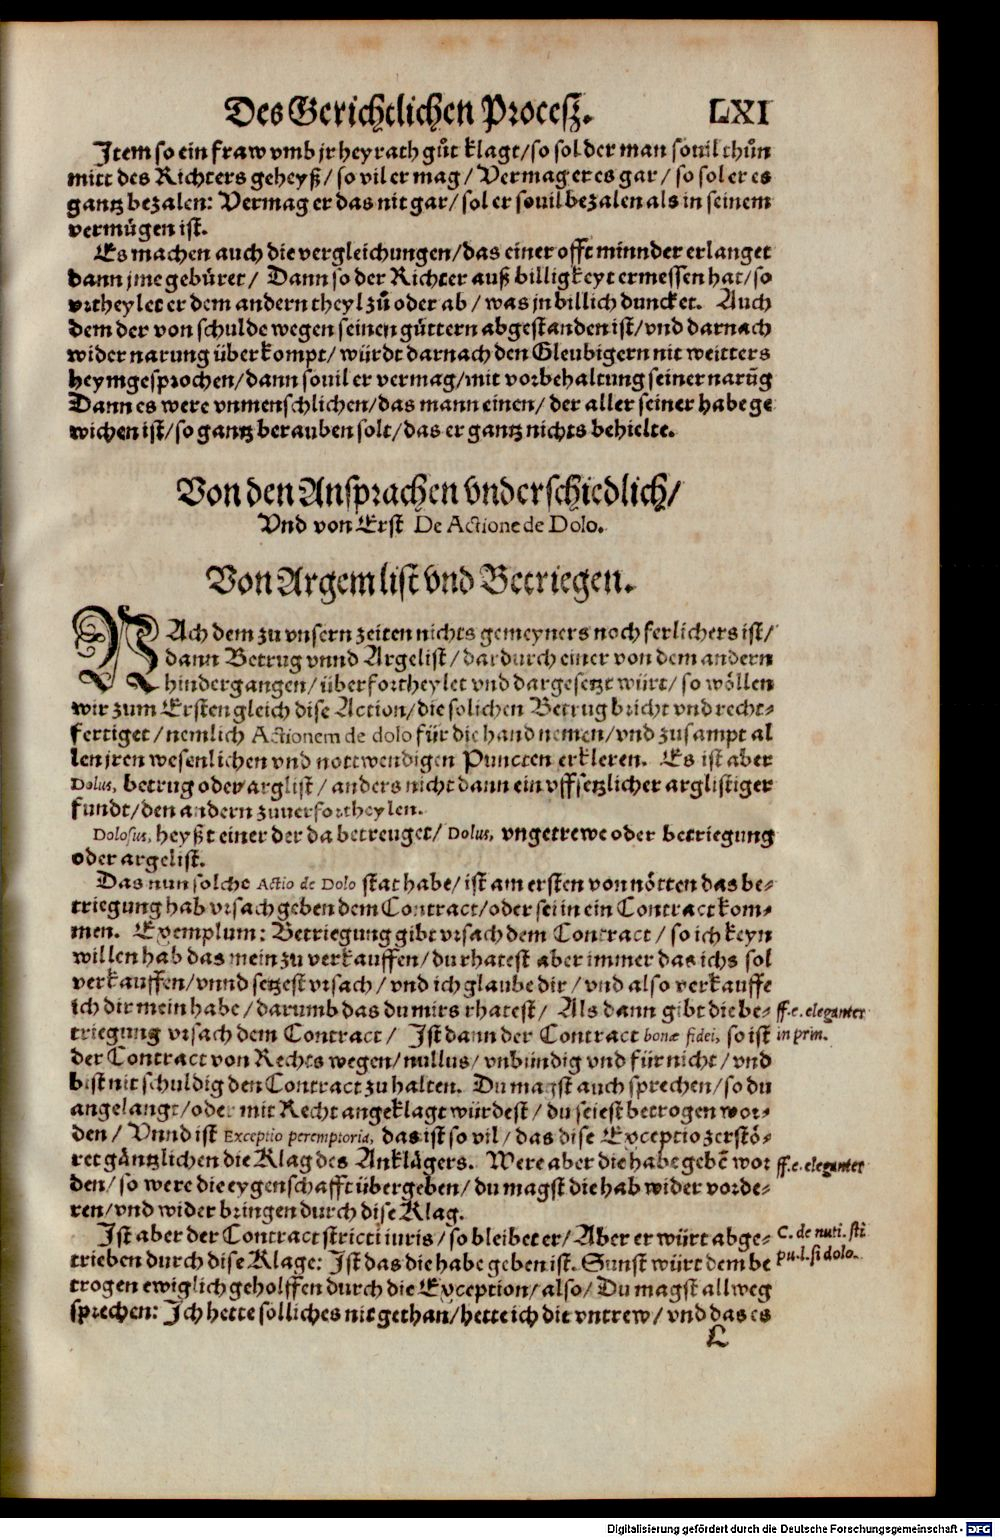 Des Gerichtlichen Procesz. LXI
Item so ein fraw vmb jr heyrath gůt klagt/ so sol der man souil thůn
mitt des Richters geheyß/ so vil er mag/ Vermag er es gar/ so sol er es
gantz bezalen: Vermag er das nit gar/ sol er souil bezalen als in seinem
vermügen ist.
Es machen auch die vergleichungen/ das einer offt minnder erlanget
dann jme gebüret/ Dann so der Richter auß billigkeyt ermessen hat/ so
vrtheylet er dem andern theyl zů oder ab/ was jn billich duncket. Auch
dem der von schulde wegen seinen güttern abgestanden ist/ vnd darnach
wider narung überkompt/ würdt darnach den Gleubigern nit weitters
heymgesprochen/ dann souil er vermag/ mit vorbehaltung seiner narūg
Dann es were vnmenschlichen/ das mann einen/ der aller seiner habe ge
wichen ist/ so gantz berauben solt/ das er gantz nichts behielte.
Von den Ansprachen vnderschiedlich/
Vnd von Erst De Actione de Dolo.
Von Argem list vnd Betriegen.
NAch dem zu vnsern zeiten nichts gemeyners noch ferlichers ist/
dann Betrug vnnd Argelist/ dardurch einer von dem andern
hindergangen/ überfortheylet vnd dargesetzt würt/ so wöllen
wir zum Ersten gleich dise Action/ die solichen Betrug bricht vnd recht-
fertiget/ nemlich Actionem de dolo für die hand nemen/ vnd zusampt al
len jren wesenlichen vnd nottwendigen Puncten erkleren. Es ist aber
Dolus, betrug oder arglist/ anders nicht dann ein vffsetzlicher arglistiger
fundt/ den andern zuuerfortheylen.
Dolosus, heyßt einer der da betreuget/ Dolus, vngetrewe oder betriegung
oder argelist.
Das nun solche Actio de Dolo stat habe/ ist am ersten von nötten das be-
triegung hab vrsach geben dem Contract/ oder sei in ein Contract kom-
men. Exemplum: Betriegung gibt vrsach dem Contract/ so ich keyn
willen hab das mein zu verkauffen/ du rhatest aber immer das ichs sol
verkauffen/ vnnd setzest vrsach/ vnd ich glaube dir/ vnd also verkauffe
ich dir mein habe/ darumb das du mirs rhatest/ Als dann gibt die be- ff.e. eleganter
triegung vrsach dem Contract/ Ist dann der Contract bonæ fidei, so ist in prin.
der Contract von Rechts wegen/ nullus/ vnbündig vnd für nicht/ vnd
bist nit schuldig den Contract zu halten. Du magst auch sprechen/ so du
angelangt/ oder mit Recht angeklagt würdest/ du seiest betrogen wor-
den/ Vnnd ist Exceptio peremptoria, das ist so vil/ das dise Exceptio zerstö-
ret gäntzlichen die Klag des Anklägers. Were aber die habe gebē wor ff.e. eleganter
den/ so were die eygenschafft übergeben/ du magst die hab wider vorde-
ren/ vnd wider bringen durch dise Klag.
Ist aber der Contract stricti iuris/ so bleibet er/ Aber er würt abge- C. de nuti. sti
trieben durch dise Klage: Ist das die habe geben ist. Sunst würt dem be pu.l.si dolo.
trogen ewiglich geholffen durch die Exception/ also/ Du magst allweg
sprechen: Ich hette solliches nit gethan/ hette ich die vntrew/ vnd das es
L
Digitalisierung gefördert durch die Deutsche Forschungsgemeinschaft - DFG